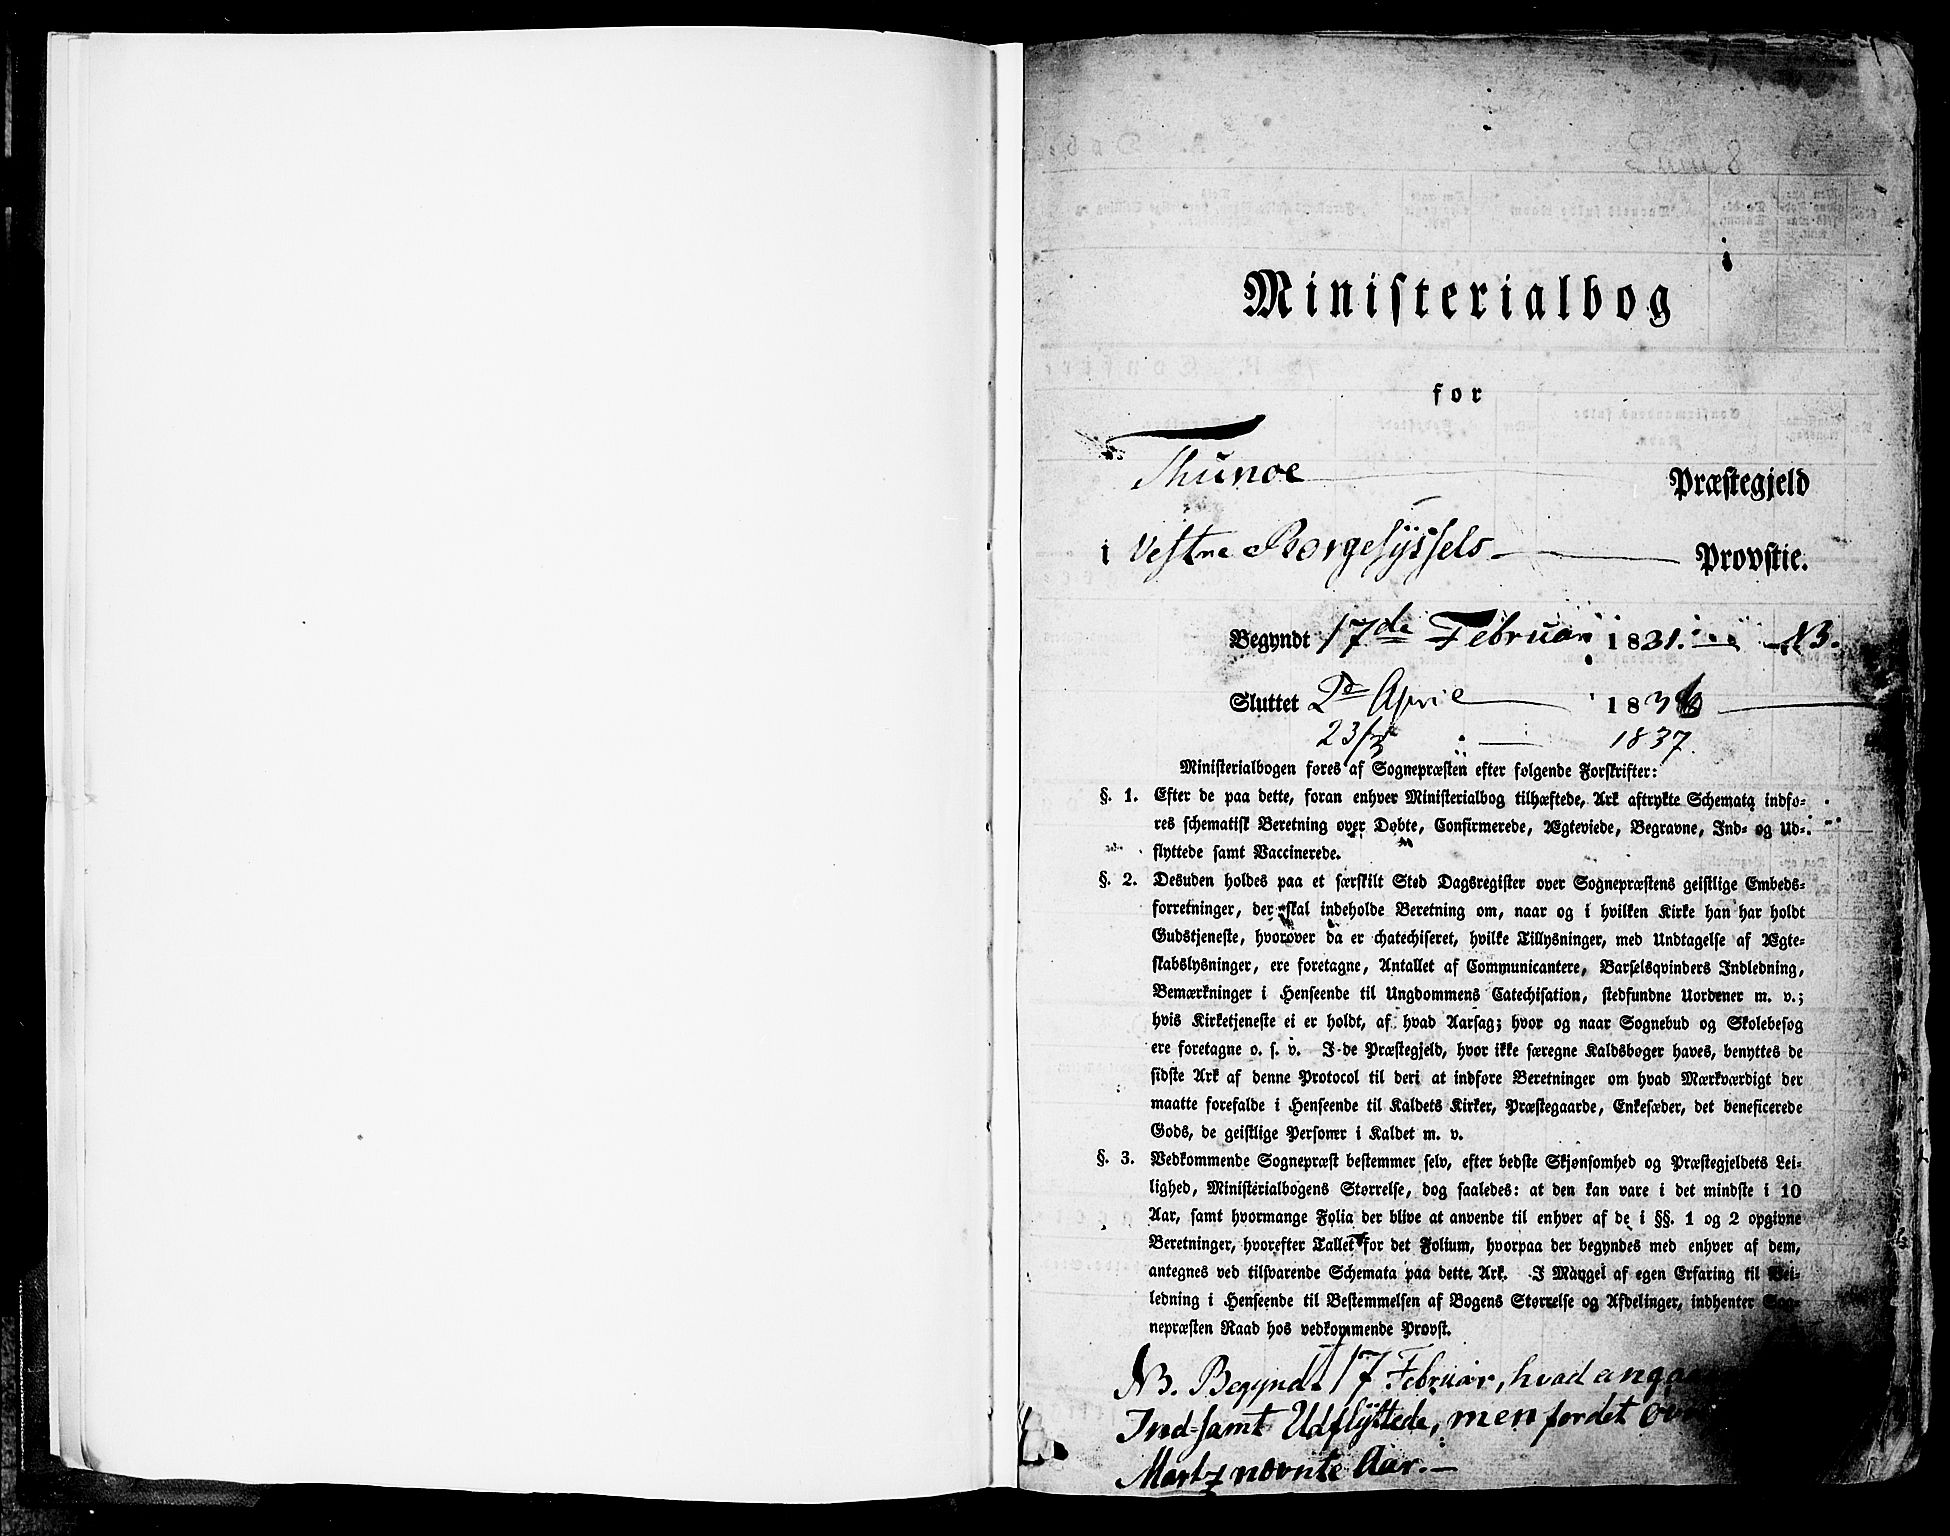 Ministerialbog
for
Thunøe Præstegjeld
i Vestre Borgesÿssels Provstie.
Begyndt 17de Februar 1831. NB.
Sluttet 2de April 183
23/3 1837
Ministerialbogen føres af Sognepræsten efter følgende Forskrifter:
§. 1. Efter de paa dette, foran enhver Ministerialbog tilhæftede, Ark aftrykte Schemata indfø-
res schematisk Beretning over Døbte, Confirmerede, Ægteviede, Begravne, Ind- og Ud-
flyttede samt Vaccinerede.
§. 2. Desuden holdes paa et særskilt Sted Dagsregister over Sognepræstens geistlige Embeds-
forretninger, der skal indeholde Beretning om, naar og i hvilken Kirke han har holdt
Gudstjeneste, hvorover da er chatechiseret, hvilke Tillysninger, med Undtagelse af Ægte-
skabslysninger, ere foretagne, Antallet af Communicantere, Barselqvinders Indledning,
Bemærkninger i Henseende til Ungdommens Catechisation, stedfundne Uordener m. v.;
hvis Kirketjeneste ei er holdt, af hvad Aarsag; hvor og naar Sognebud og Skolebesøg
ere foretagne o. s. v. I de Præstegjeld, hvor ikke særegne Kaldsbøger haves, benyttes de
sidste Ark af denne Protocol til deri at indføre Beretninger om hvad Mærkværdigt der
maatte forefalde i Henseende til Kaldets Kirker, Præstegaarde, Enkesæder, det beneficerede
Gods, de geistlige Personer i Kaldet m. v.
§. 3. Vedkommende Sognepræst bestemmer selv, efter bedste Skjønsomhed og Præstegjeldets Lei-
lighed, Ministerialbogens Størrelse, dog saaledes: at den kan vare i det mindste i 10
Aar, samt hvormange Folia der blive at anvende til enhver af de i §§. 1 og 2 opgivne
Beretninger, hvorefter Tallet for det Folium, hvorpaa der begyndes med enhver af dem,
antegnes ved tilsvarende Schemata paa dette Ark. I Mangel af egen Erfaring til Vei-
ledning i Henseende til Bestemmelsen af Bogens Størrelse og Afdelinger, indhenter Sog-
nepræsten Raad hos vedkommende Provst.
NB. Begyndt 17 Februar, hvad
Ind-samt Udflÿttede, men for det
Martz nævnte Aar.